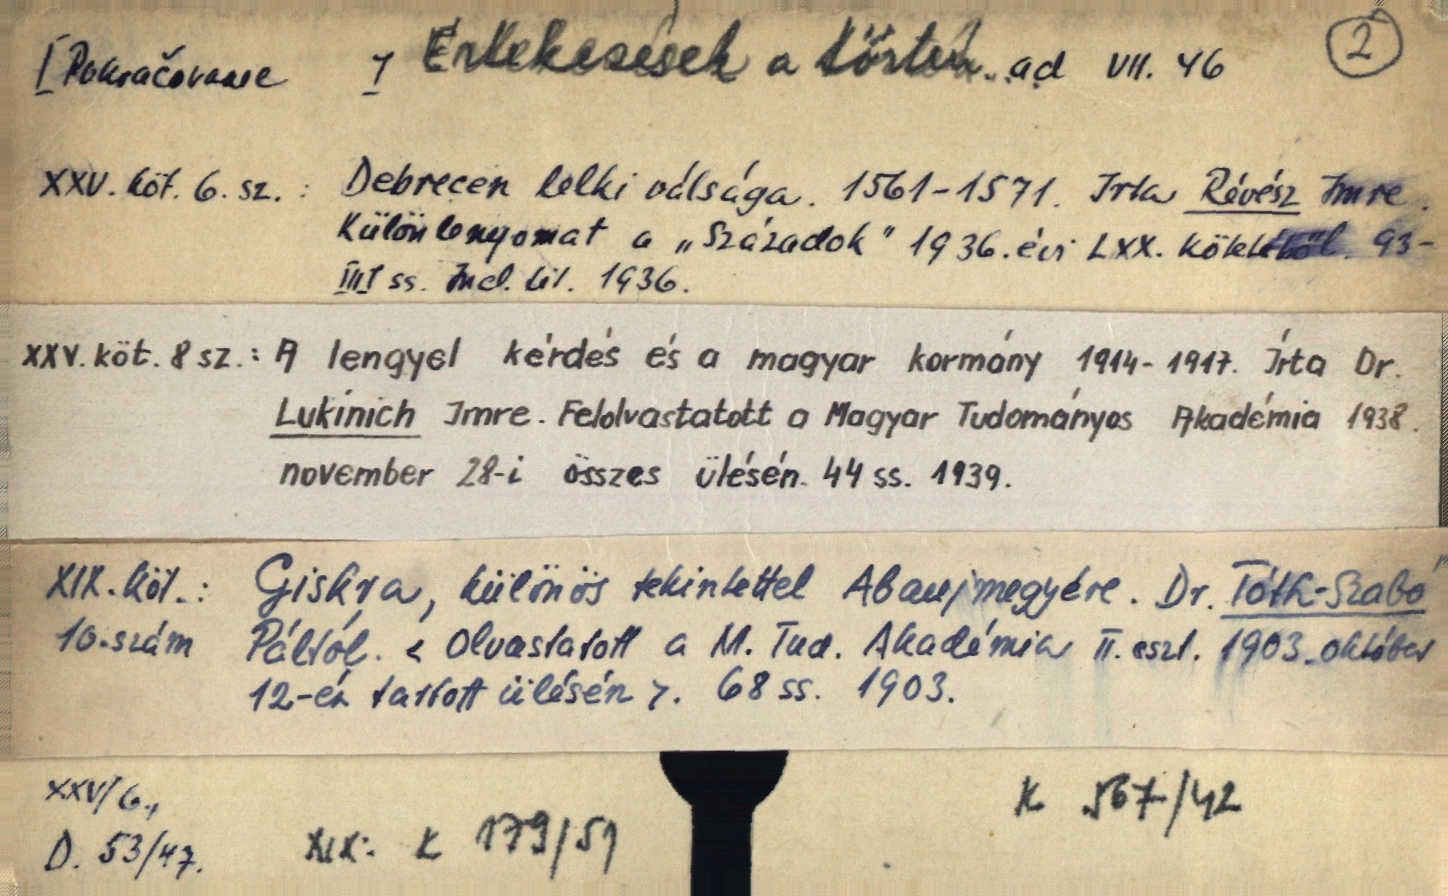 I Pokračovanie I Értekezések a Történ. ad VII. 46 2
XXV. köt. 6. sz. : Debrecen lelki válsága. 1561-1571. Irta Révész Imre.
Különlenyomat a „Századok" 1936. évi LXX. kötetéből. 93-
III ss. Incl. tit. 1936.
XXV. köt. 8 sz. : A lengyel kérdés és a magyar kormány 1914-1917. Írta Dr.
Lukinich Imre. Felolvastatott a Magyar Tudományos Akadémia 1938.
november 28-i összes ülésén. 44 ss. 1939.
XIX. köt. : Giskra, különös tekintettel Abaujmegyére. Dr. Tóth-Szabó
10. szám Páltól. < Olvastatott a M. Tud. Akadémia II. oszt. 1903. október
12-én tartott ülésén >. 68 ss. 1903.
XXV/6.,
D. 53/47.
XIX: K 179/51
K 567/42